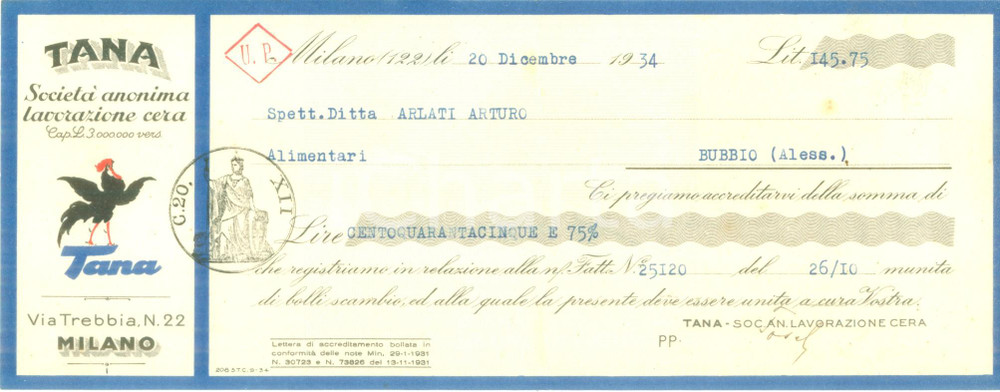 TANA
Società anonima
lavorazione cera
Cap. L. 3.000.000 vers.
Tana
Via Trebbia, N. 22
MILANO
U. P.
Milano (122) li 20 Dicembre 1934 Lit. 145.75
Spett. Ditta ARLATI ARTURO
Alimentari BUBBIO (Aless.)
C. 20. XII
Ci pregiamo accreditarvi della somma di
Lire CENTOQUARANTACINQUE E 75%
che registriamo in relazione alla n/. Fatt. N. 25120 del 26/10 munita
di bolli scambio, ed alla quale la presente deve essere unita a cura Vostra.
TANA - SOC. AN. LAVORAZIONE CERA
PP.
Lettera di accreditamento bollata in
conformità delle note Min. 29-1-1931
N. 30723 e N. 73826 del 13-11-1931